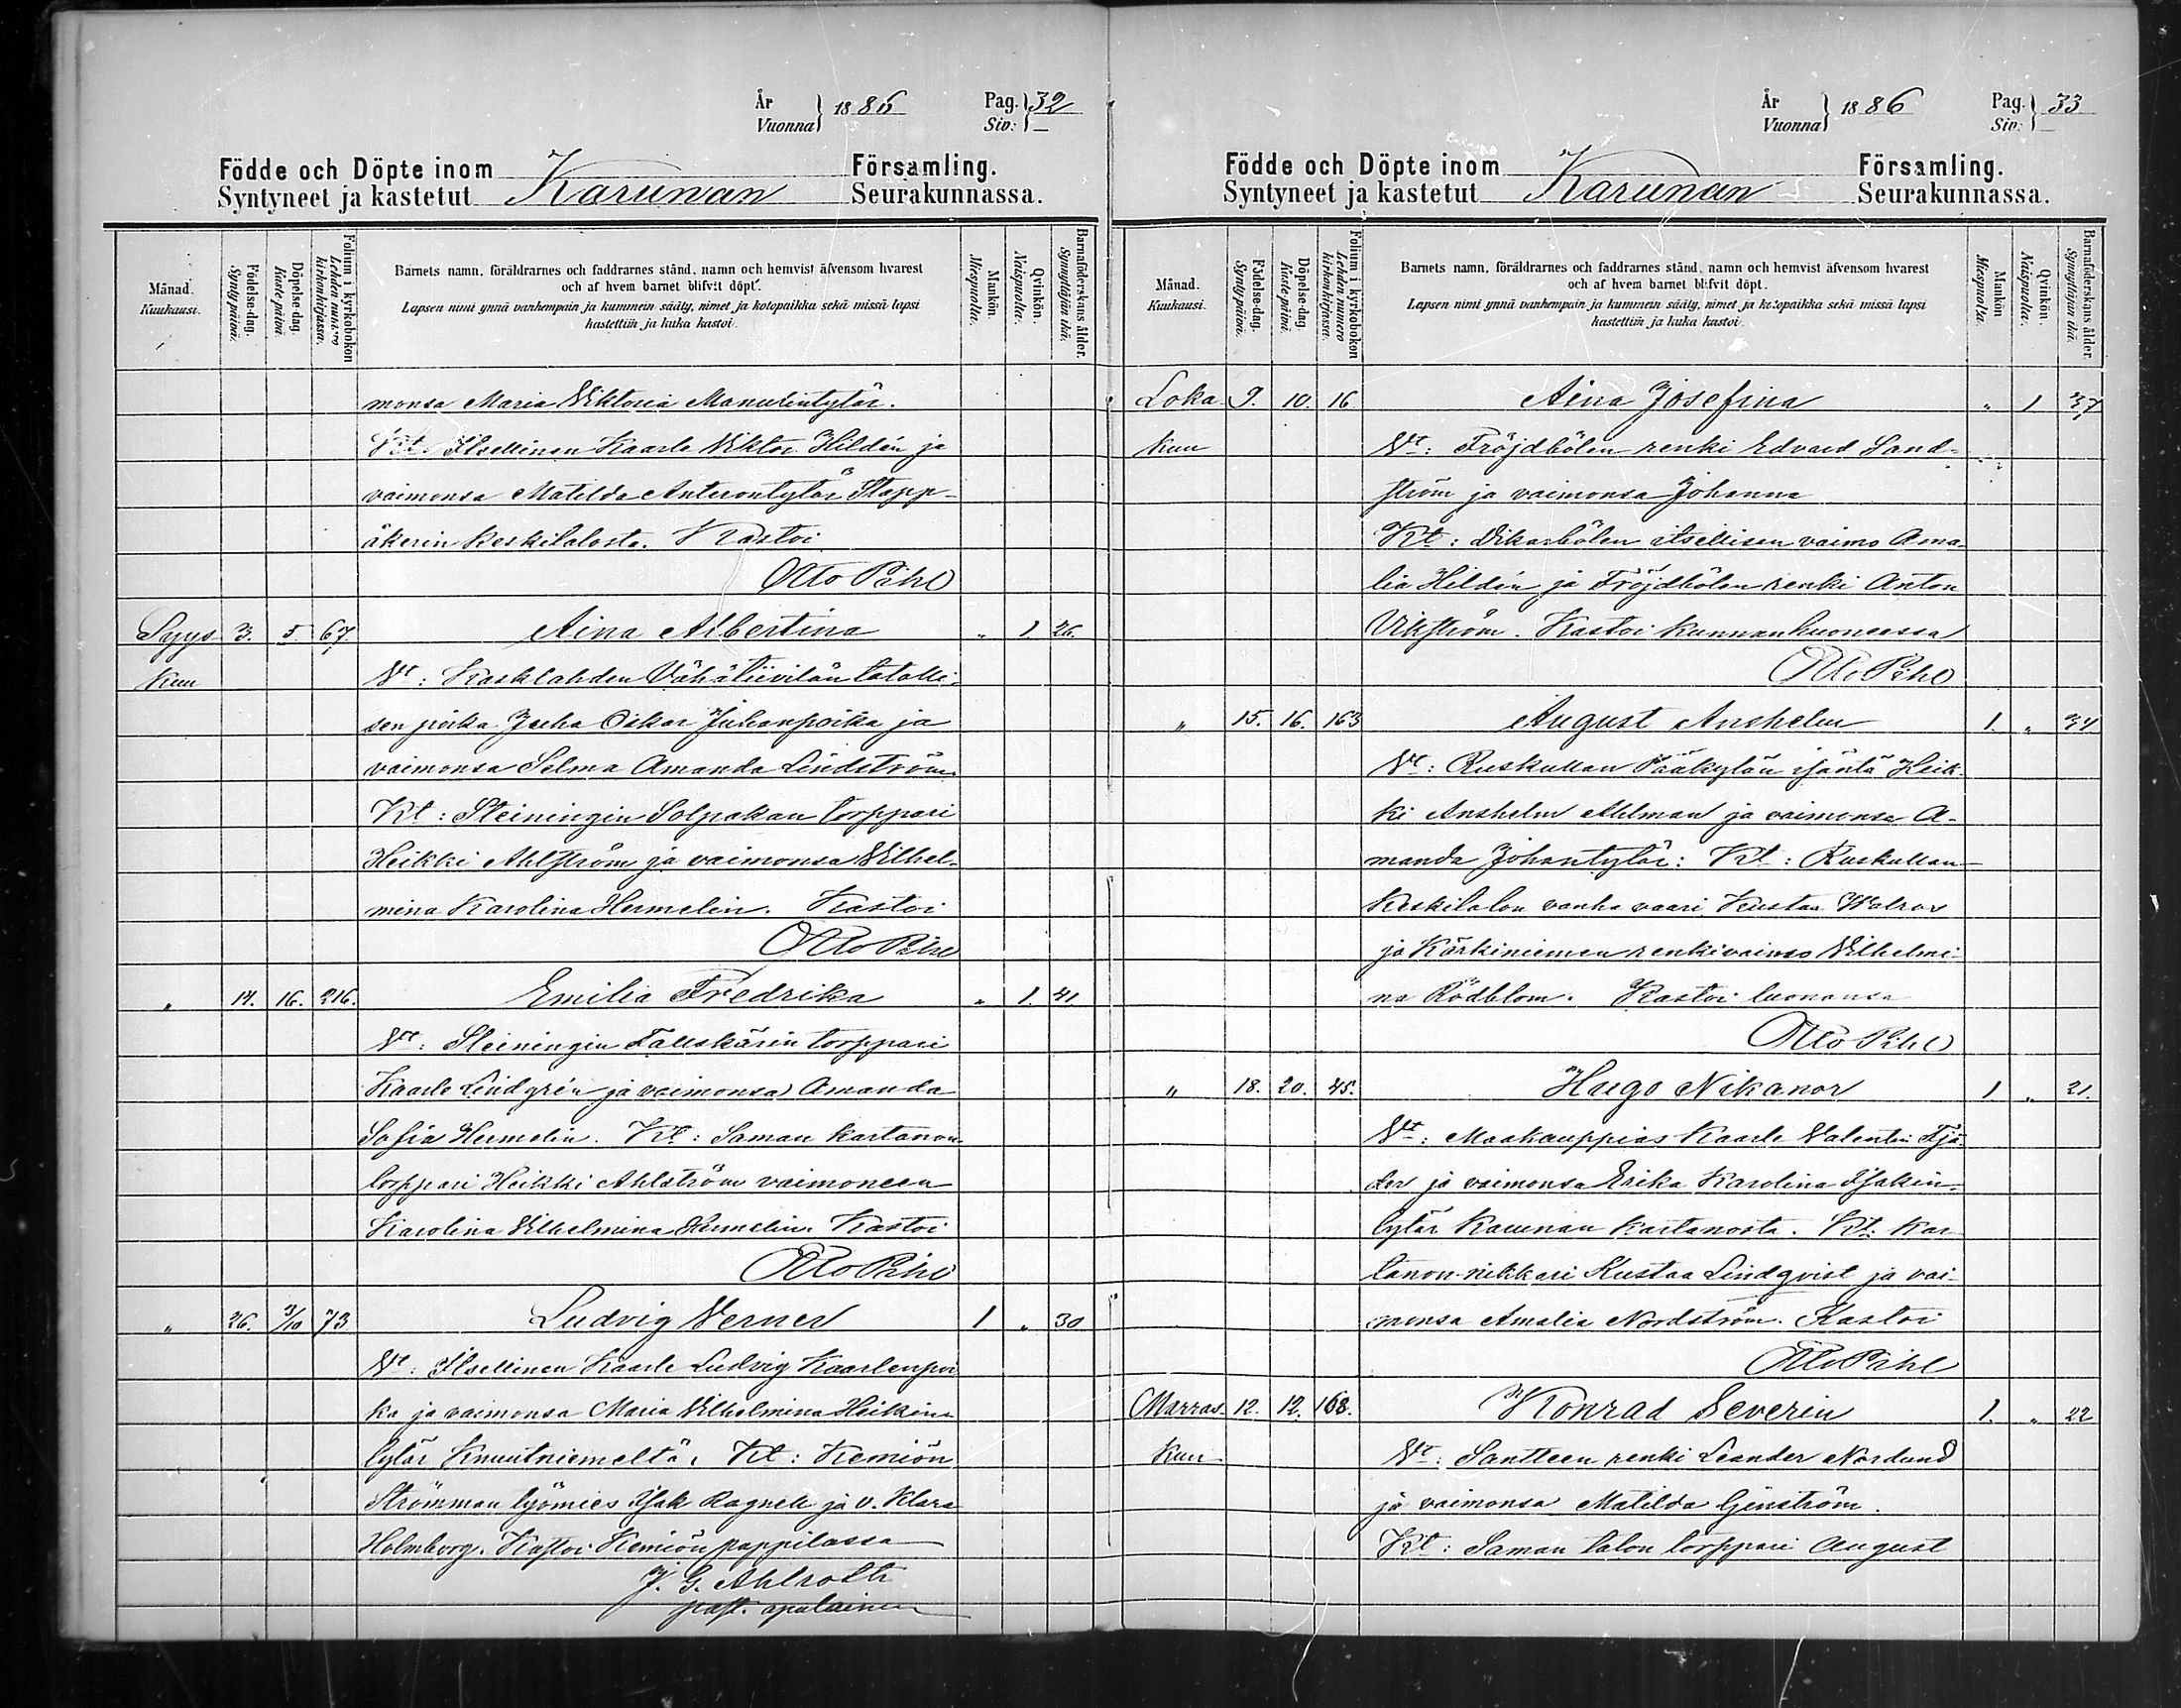 År
Vuonna } 1886 Pag. Siv: } 32
Födde och Döpte inom Karunan Församling.
Syntyneet ja kastetut Seurakunnassa.
Månad. Kuukausi.
Födelse-dag. Syntypäivä.
Döpelse-dag. Kastepäivä.
Folium i kyrkoboken Lehden numero kirkonkirjassa.
Barnets namn, föräldrarnes och faddrarnes stånd, namn och hemvist äfvensom hvarest
och af hvem barnet blifvit döpt.
Lapsen nimi ynnä vanhempain ja kummein sääty, nimet ja kotopaikka sekä missä lapsi
kastettiin ja kuka kastoi.
Mankön. Miespuolia.
Qvinkön. Naispuolia.
Barnaföderskans ålder. Synnyttäjän ikä.
monsa Maria Viktoria Manuelintytär.
Kt: Itsellinen Kaarle Viktor Hildén ja
vaimonsa Matilda Anterontytär Stapp-
åkerin Keskitalosta. Kastoi
Otto Pihl
Syys- 3. 5. 67. Aina Albertina „ 1. 26.
kuu Vt: Kasklahden Vähätiivilän talolli-
sen poika Juha Oskar Juhanpoika ja
vaimonsa Selma Amanda Lindström.
Kt: Steiningin Solpakan torppari
Heikki Ahlström ja vaimonsa Vilhel-
mina Karolina Hermelin. Kastoi
Otto Pihl
„ 14. 16. 216. Emilia Fredrika „ 1. 41
Vt: Steiningin Tallskärin torppari
Kaarle Lindgrén ja vaimonsa Amanda
Sofia Hermelin. Kt: Saman kartanon
torppari Heikki Ahlström vaimoneen
Karolina Vilhelmina Hermelin. Kastoi
Otto Pihl
„ 26. 3/10 73 Ludvig Verner 1 „ 30
Vt: Itsellinen Kaarle Ludvig Kaarlenpoi
ka ja vaimonsa Maria Vilhelmina Heikin-
tytär Knuutniemeltä. Kt: Kemiön
Strömman työmies Isak Ragnell ja v. Klara
Holmborg. Kastoi Kemiön pappilassa
J. G. Ahlroth
past. apulainen
År
Vuonna } 1886 Pag. Siv: } 33
Födde och Döpte inom Karunan Församling.
Syntyneet ja kastetut Seurakunnassa.
Månad. Kuukausi.
Födelse-dag. Syntypäivä.
Döpelse-dag. Kastepäivä.
Folium i kyrkoboken Lehden numero kirkonkirjassa.
Barnets namn, föräldrarnes och faddrarnes stånd, namn och hemvist äfvensom hvarest
och af hvem barnet blifvit döpt.
Lapsen nimi ynnä vanhempain ja kummein sääty, nimet ja kotopaikka sekä missä lapsi
kastettiin ja kuka kastoi.
Mankön Miespuolia.
Qvinkön. Naispuolia.
Barnaföderskans ålder. Synnyttäjän ikä.
Loka- 9. 10. 16 Aina Josefina „ 1 37
kuu Vt: Fröjdbölen renki Edvard Sand-
ström ja vaimonsa Johanna
Kt: Vikarbölen itsellisen vaimo Ama-
lia Hildén ja Fröjdbölen renki Anton
Vikström. Kastoi kunnanhuoneessa
Otto Pihl
„ 15. 16. 163 August Anshelm 1. „ 34
Vt: Ruskullan Pääkylän isäntä Heik-
ki Anshelm Ahlman ja vaimonsa A-
manda Johantytär: Kt: Ruskullan
Keskitalon vanha vaari Kustaa Walros
ja Kärkiniemen renkivaimo Vilhelmi-
na Rödblom. Kastoi luonansa
Otto Pihl
„ 18. 20. 45. Hugo Nikanor 1 „ 21.
Vt: Maakauppias Kaarle Valentin Fjä-
der ja vaimonsa Erika Karolina Isakin-
tytär Karunan Kartanosta. Kt: Kar
tanon nikkari Kustaa Lindqvist ja vai-
monsa Amalia Nordström. Kastoi
Otto Pihl
Marras- 12. 12. 168. Konrad Severin 1. „ 22
kuu Vt: Santteen renki Leander Norlund
ja vaimonsa Matilda Genström.
Kt: Saman talon torppari August